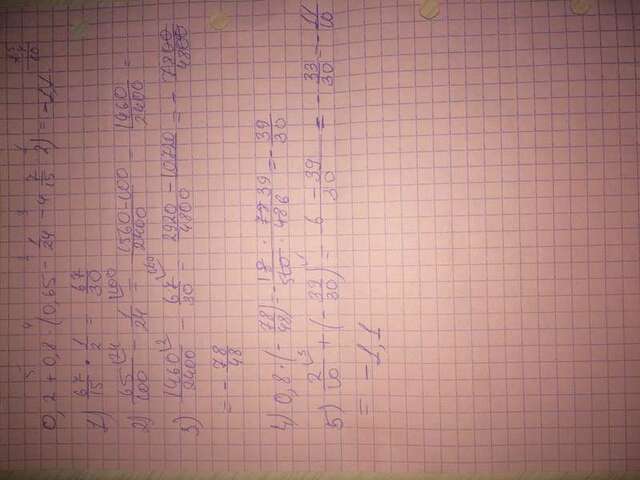 5 4 2 3 1
0,2 + 0,8 · (0,65 - 1/24 - 4 7/15 : 2) = -1,1
1) 67/15 · 1/2 = 67/30
2) 65/100 - 1/24 = 1560-100/2400 = 1460/2400 =
3) 1460/2400 - 67/30 = 2920 - 10720/4800 = - 7800/4800
= - 78/48
4) 0,8 · (- 78/48) = - 8 · 78 39/10 · 48 6 = - 39/30
5) 2/10 + (- 39/30) = 6 - 39/30 = - 33/30 = - 11/10
= -1,1